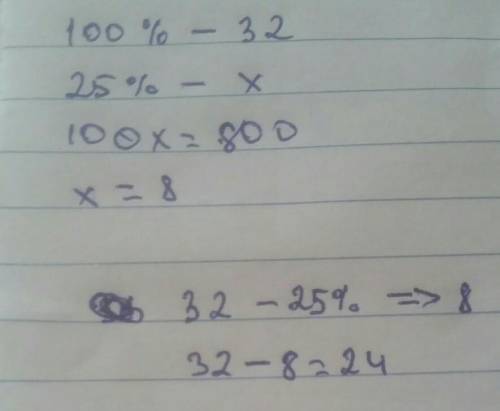 100% - 32
25% - x
100x = 800
x = 8
32 - 25% => 8
32 - 8 = 24